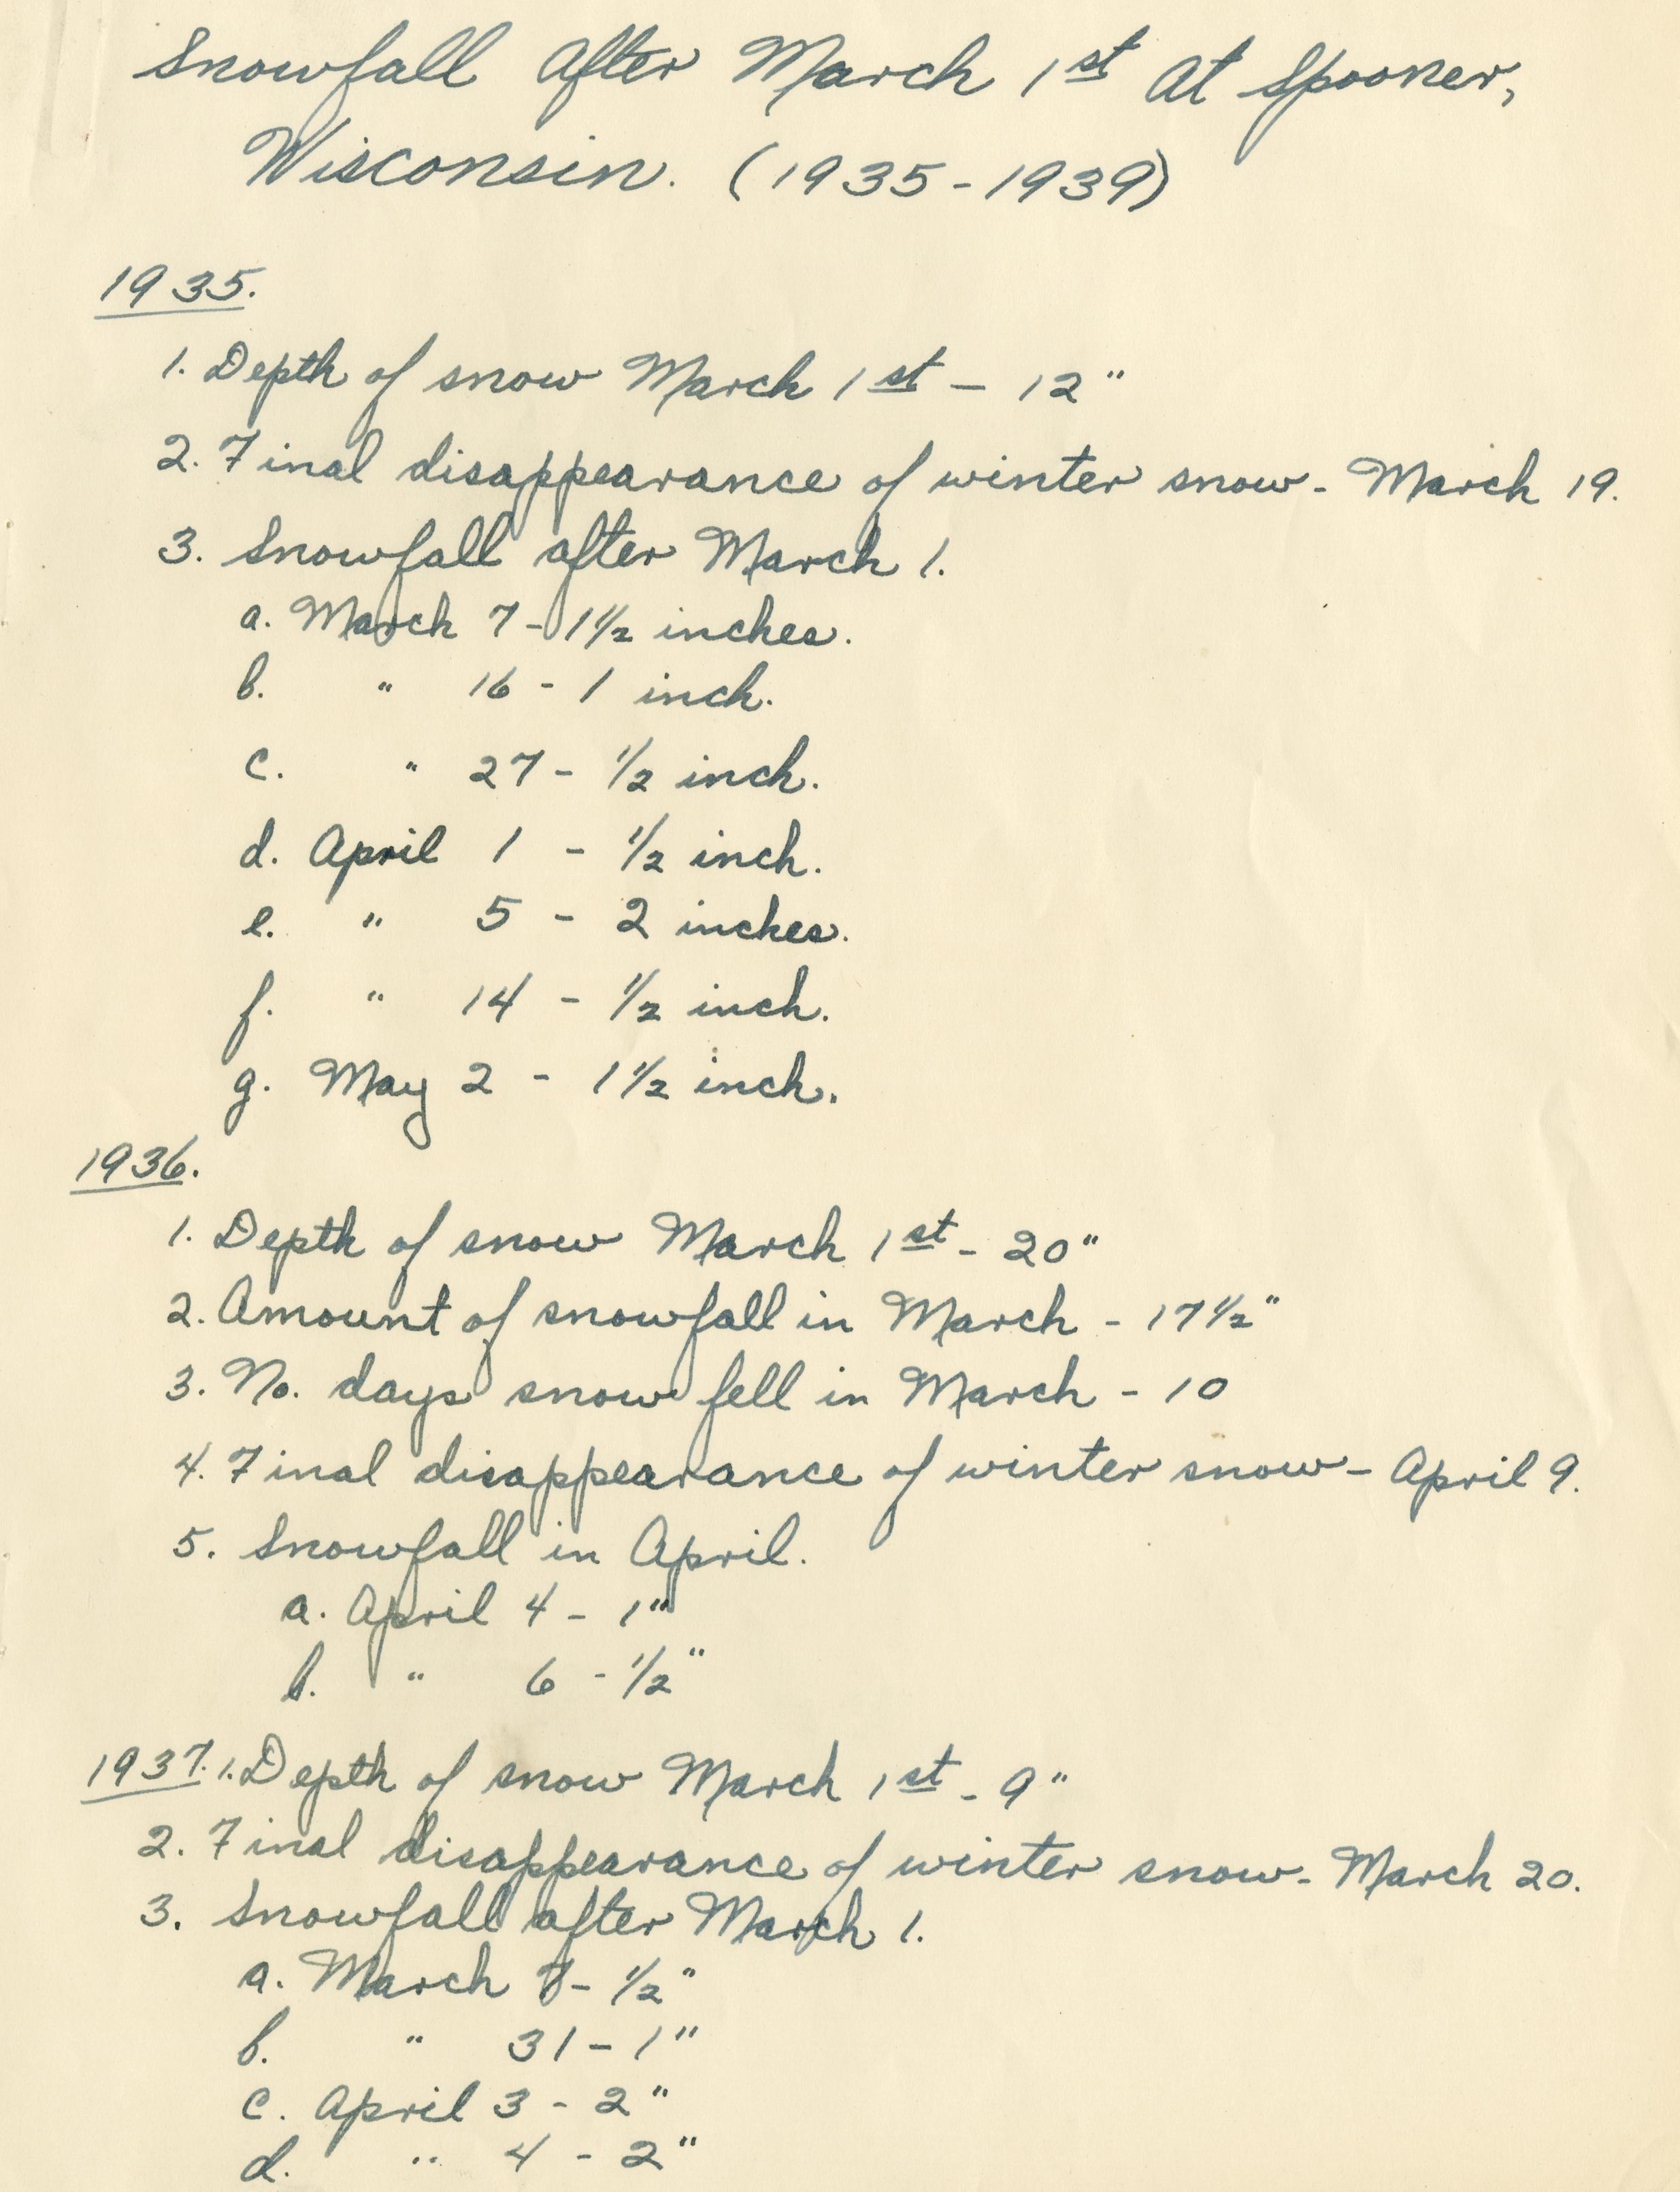 Snowfall After March 1st At Spooner,
Wisconsin. (1935-1939)
1935.
1. Depth of snow March 1st - 12"
2. Final disappearance of winter snow - March 19.
3. Snowfall after March 1.
a. March 7 - 1 1/2 inches.
b. " 16 - 1 inch.
c. " 27 - 1/2 inch.
d. April 1 - 1/2 inch.
e. " 5 - 2 inches.
f. " 14 - 1/2 inch.
g. May 2 - 1 1/2 inch.
1936.
1. Depth of snow March 1st - 20"
2. Amount of snowfall in March - 17 1/2"
3. No. days snow fell in March - 10
4. Final disappearance of winter snow - April 9.
5. Snowfall in April.
a. April 4 - 1"
b. " 6 - 1/2"
1937. 1. Depth of snow March 1st - 9"
2. Final disappearance of winter snow - March 20.
3. Snowfall after March 1.
a. March - 1/2"
b. " 31 - 1"
c. April 3 - 2"
d. " 4 - 2"